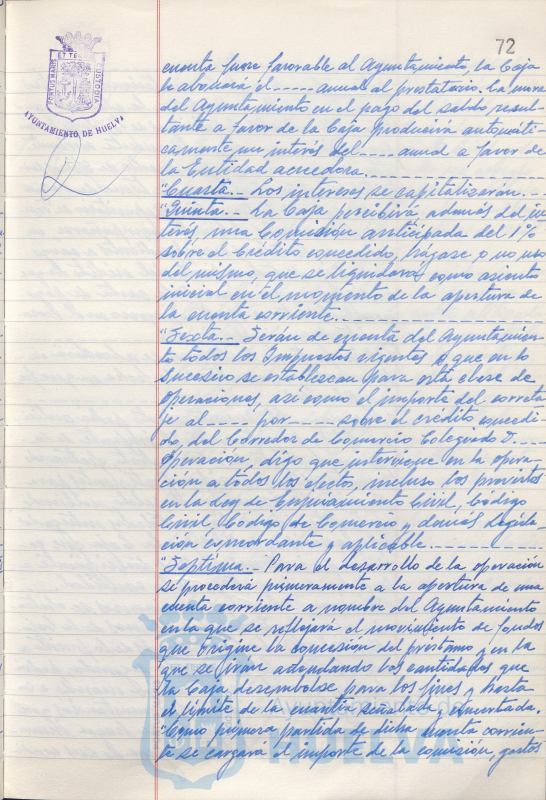 72
PORTUS MARIS
ET TERRAE
CUSTODIA
AYUNTAMIENTO DE HUELVA
cuenta fuere favorable al Ayuntamiento, la Caja
le abonará el ----- anual al prestatario. La mora
del Ayuntamiento en el pago del saldo, resul-
tante a favor de la Caja producirá automáti-
camente un interés del ---- anual a favor de
la Entidad acreedora. ----------
"Cuarta.- Los intereses se capitalizarán. --
"Quinta.- La Caja percibirá, además del in-
terés una Comisión anticipada del 1%
sobre el Crédito concedido, hágase o no uso
del mismo, que se liquidará como asiento
inicial en el momento de la apertura de
la cuenta corriente. ----------
"Sexta.- Serán de cuenta del Ayuntamien-
to todos los Impuestos vigentes o que en lo
sucesivo se establezcan para esta clase de
operaciones, así como el importe del correta-
je al ---- por ----- sobre el crédito concedi-
do, del Corredor de Comercio Colegiado D. ----
operación, digo que interviene en la opera-
ción a todos los efectos, incluso los previstos
en la Ley de Enjuiciamiento Civil, Código
Civil, Código de Comercio y demás legisla-
ción concordante y aplicable. ----------
"Séptima.- Para el desarrollo de la operación
se procederá primeramente a la apertura de una
cuenta corriente a nombre del Ayuntamiento
en la que se reflejará el movimiento de fondos
que origine la concesión del préstamo y en la
que se irán adeudando las cantidades que
la Caja desembolse para los fines y hasta
el límite de la cuantía señalada y aumentada.
"Como primera partida de dicha cuenta corrien-
te se cargará el importe de la comisión, gastos